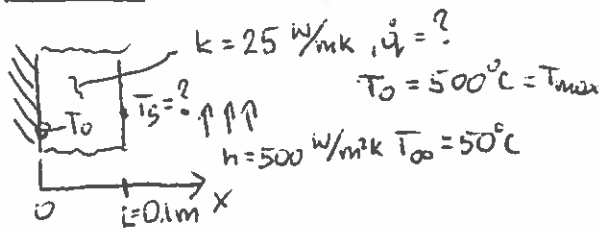 k = 25 W/mk , q̇ = ?
T₀ = 500°C = Tmax
T₀
Ts = ?
h = 500 W/m²k T∞ = 50°C
0
L=0.1m
X